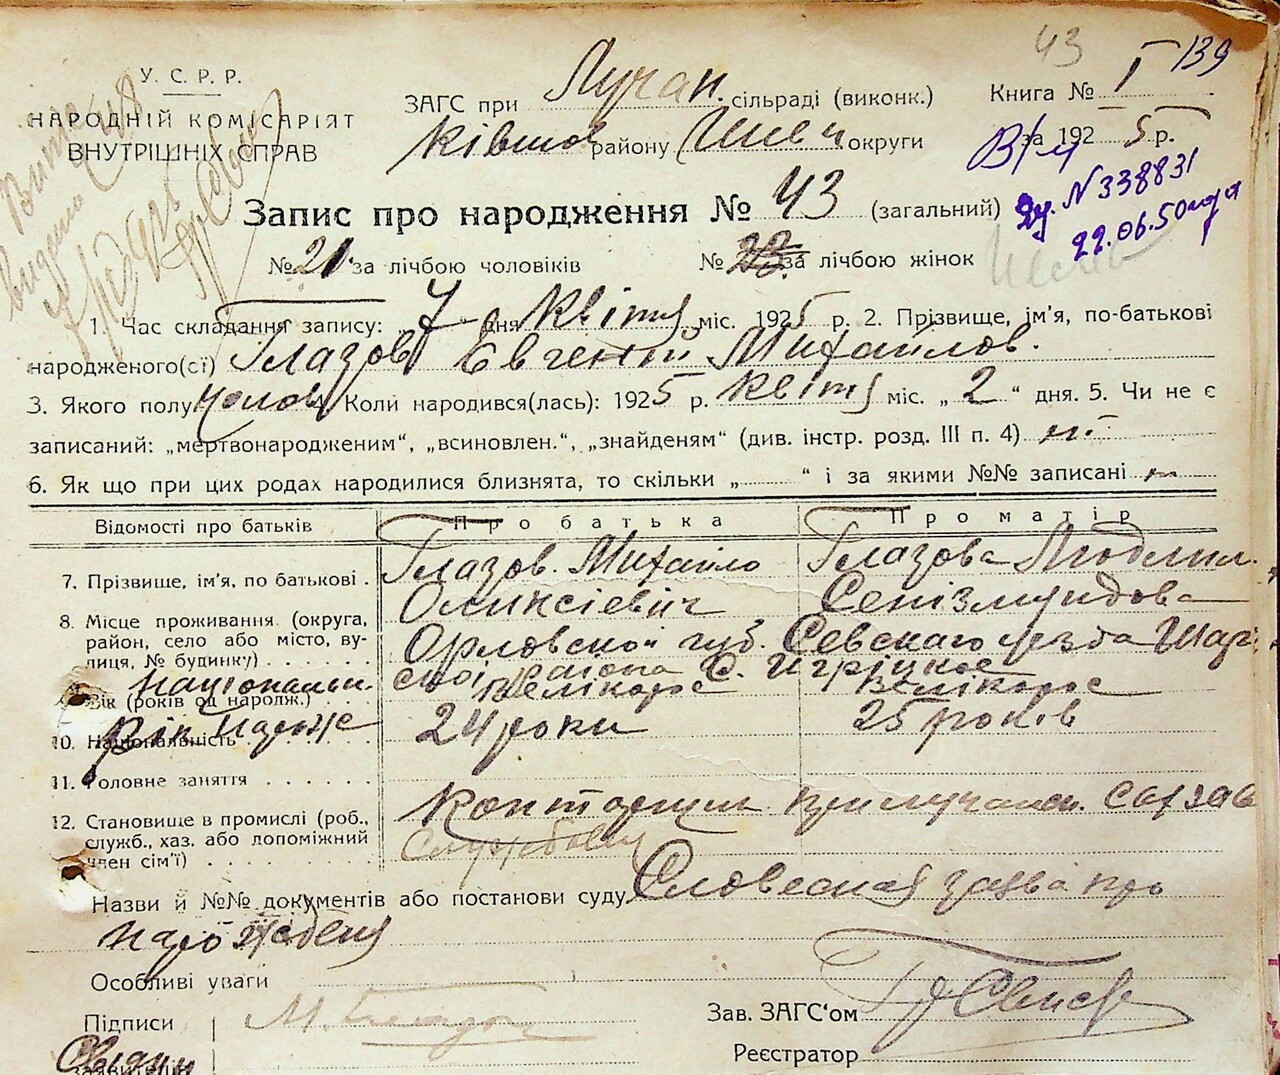 43
139
У. С. Р. Р.
НАРОДНІЙ КОМІСАРІЯТ
ВНУТРІШНІХ СПРАВ
ЗАГС при Лучан. сільраді (виконк.)
району округи
Книга № I
за 1925 р.
N 338831
22.06.50
Запис про народження № 43 (загальний)
№ 21 за лічбою чоловіків № за лічбою жінок
1. Час складання запису: „7“ дня Квітня міс. 1925 р. 2. Прізвище, ім’я, по-батькові
народженого(сі) Глазов Евгений Михайлов.
3. Якого полу чолов 4. Коли народився(лась): 1925 р. квітня міс. „2“ дня. 5. Чи не є
записаний: „мертвонародженим“, „всиновлен.“, „знайденям“ (див. інстр. розд. III п. 4) ні
6. Як що при цих родах народилися близнята, то скільки „ “ і за якими №№ записані
Відомості про батьків Про батька Про матір
7. Прізвище, ім’я, по батькові . Глазов. Михайло Глазова Людмил.
Оликсієвич
8. Місце проживання (округа,
район, село або місто, ву-
лиця, № будинку) . . . . . . Орловской губ. Севскаго уезда
района С. Игріцкое
Національн. Велікорос Велікорос
Вік (років од народж.) . .
рік народж 24 роки 25 років
10. Національність
11. Головне заняття . . . . . .
12. Становище в промислі (роб.,
служб., хаз. або допоміжний
член сім’ї) . . . . . . . . Конторщик при Лучанск. Сахзав
Службовец
Назви й №№ документів або постанови суду Словесная заява про
народження
Особливі уваги
Підписи М. Глазов
Зав. ЗАГС'ом
Реєстратор